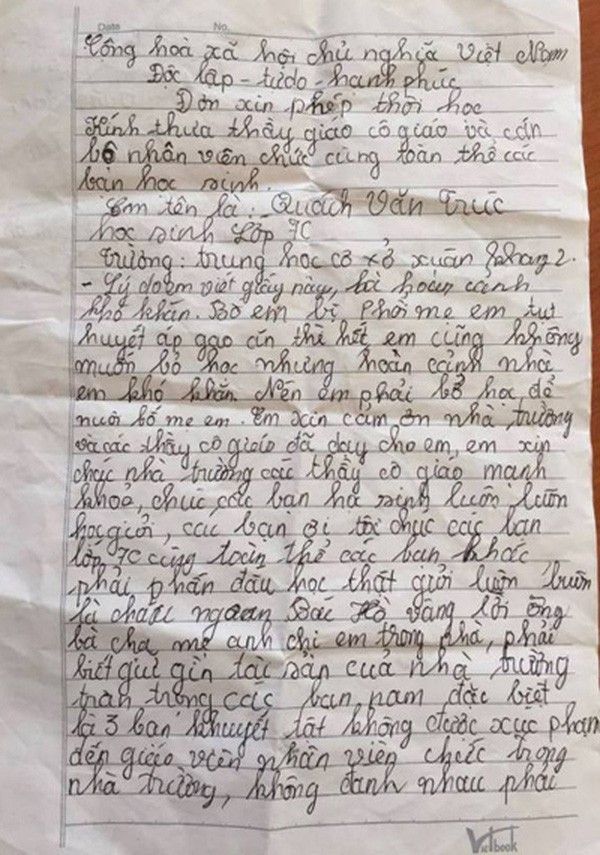 Date No.
Công hoà xã hội chủ nghĩa Việt Nam
Độc lập - tự do - hanh phúc
Đơn xin phép thôi học
Kính thưa thầy giáo cô giáo và cán
bộ nhân viên chức cùng toàn thể các
bạn học sinh.
Em tên là: Quách Văn Trúc
học sinh Lớp 7C
Trường: trung học cơ xở xuân khang 2.
- Lý do em viết giấy này, là hoàn cảnh
khó khăn. Bố em bị phổi mẹ em tụt
huyết áp gạo ăn thì hết em cũng không
muốn bỏ học nhưng hoàn cảnh nhà
em khó khăn. Nên em phải bỏ học để
nuôi bố mẹ em. Em xin cảm ơn nhà trường
và các thầy cô giáo đã dạy cho em, em xin
chúc nhà trường các thầy cô giáo mạnh
khoẻ, chúc các bạn học sinh luôn luôn
học giỏi, các bạn ơi tôi chúc các bạn
lớp 7C cùng toàn thể các bạn khác
phải phấn đấu học thật giỏi luôn luôn
là cháu ngoan Bác Hồ vâng lời ông
bà cha mẹ anh chị em trong nhà, phải
biết giữ gìn tài sản của nhà trường
trân trọng các bạn nam đặc biệt
là 3 bạn khuyết tật không được xúc phạm
đến giáo viên nhân viên chức trong
nhà trường, không đánh nhau phải
Vietbook